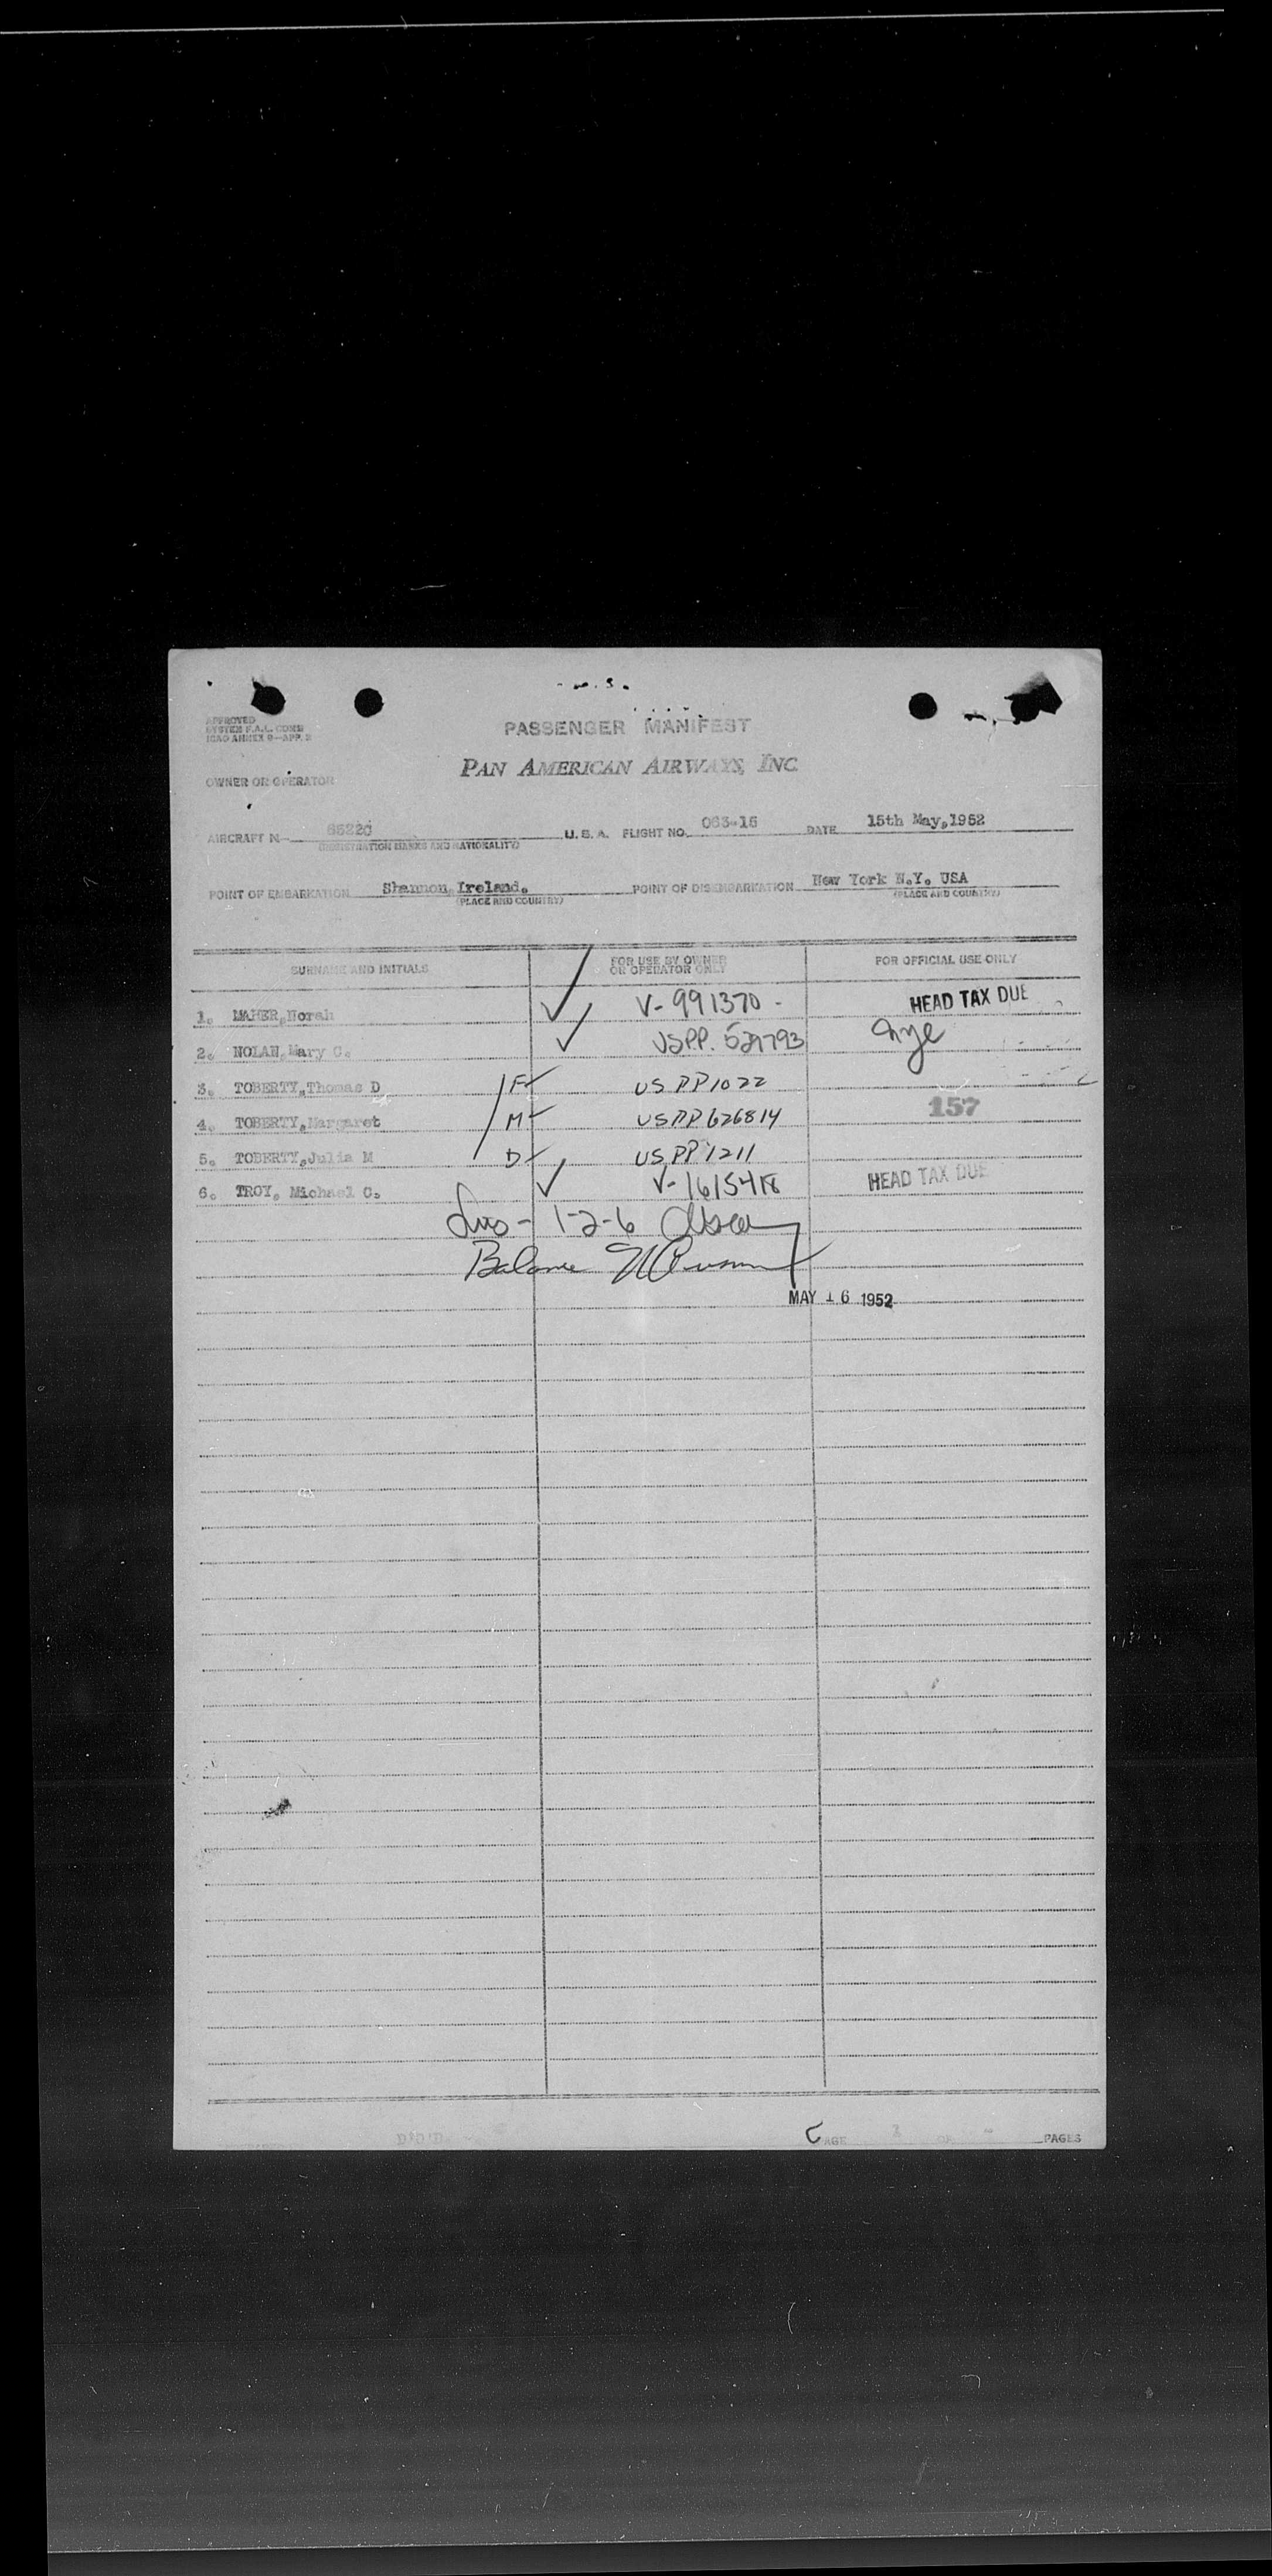 APPROVED
SYSTEM F.A.L. COMB
ICAO ANNEX 9—APP. 3
PASSENGER MANIFEST
PAN AMERICAN AIRWAYS, INC.
OWNER OR OPERATOR
AIRCRAFT N— U.S.A. FLIGHT NO. 063-15 DATE 15th May,1952
(REGISTRATION MARKS AND NATIONALITY)
POINT OF EMBARKATION Shannon,Ireland. POINT OF DISEMBARKATION New York N.Y. USA
(PLACE AND COUNTRY) (PLACE AND COUNTRY)
SURNAME AND INITIALS FOR USE BY OWNER OR OPERATOR ONLY FOR OFFICIAL USE ONLY
1. MAHER,Norah V-991370 - HEAD TAX DUE
2. NOLAN,Mary C. USPP. 529793
3. TOBERTY,Thomas D F US PP 1022
4. TOBERTY,Margaret M US PP 626814 157
5. TOBERTY,Julia M D US PP 1211
6. TROY, Michael C. V-1615418 HEAD TAX DUE
1-2-6
Balance
MAY 16 1952
PAGE OF PAGES